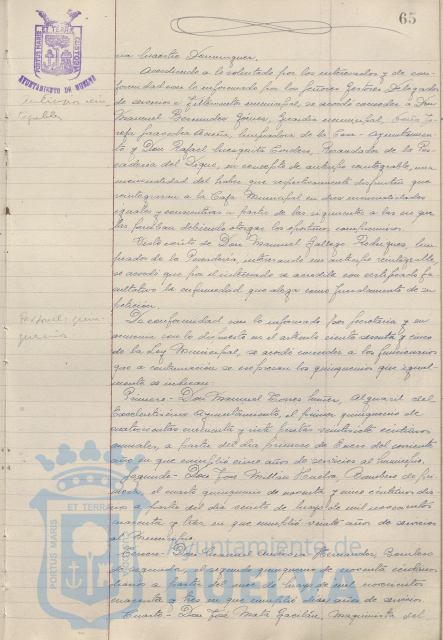 65
PORTUS MARIS ET TERRAE CUSTODIA
AYUNTAMIENTO DE HUELVA
na Maestre Dominguez.
Accediendo a lo solicitado por los interesados y de con-
formidad con lo informado por los señores Gestores Delegados
de servicios e Intervención municipal, se acordó conceder a Don
Manuel Bermudez Gómez, Guardia municipal, Doña Jo-
sefa limpiadora de la Casa-Ayuntamien-
to y Don Rafael Mesquita Cordero, Recaudador de la Pes-
cadería del Dique, en concepto de anticipo reintegrable, una
mensualidad del haber que respectivamente disfrutan que
reintegraran a la Caja Municipal en diez mensualidades
iguales y consecutivas a partir de las siguientes a las en que
las perciban debiendo otorgar los oportunos compromisos.
Visto escrito de Don Manuel Gallego Rodriguez, lim-
piador de la Pescadería, interesando un anticipo reintegrable,
se acordó que por el interesado se acredite con certificado fa-
cultativo la enfermedad que alega como fundamento de su
petición.
De conformidad con lo informado por Secretaría y en
armonía con lo dispuesto en el artículo ciento ochenta y cinco
de la Ley Municipal, se acordó conceder a los funcionarios
que a continuación se expresan los quinquenios que igual-
mente se indican:
Primero - Don Manuel Torres Nuñez, Alguacil del
Excelentísimo Ayuntamiento, el primer quinquenio de
cuatrocientas cincuenta y siete pesetas veinticinco céntimos
anuales, a partir del día primero de Enero del corriente
año en que cumplió cinco años de servicios al Municipio.
Segundo - Don José Millan Bombero de pri-
mera, el cuarto quinquenio de noventa y cinco céntimos dia-
rios a partir del día veinte de Mayo de mil novecientos
cuarenta y tres en que cumplió veinte años de servicios
al Municipio.
Tercero - Don Hernandez, Bombero
de segunda, el segundo quinquenio de noventa céntimos
diarios a partir del mes de Mayo de mil novecientos
cuarenta y tres en que cumplió diez años de servicio.
Cuarto - Don José Mata Maquinista del
Ayuntamiento de
HUELVA
PORTUS MARIS ET TERRAE